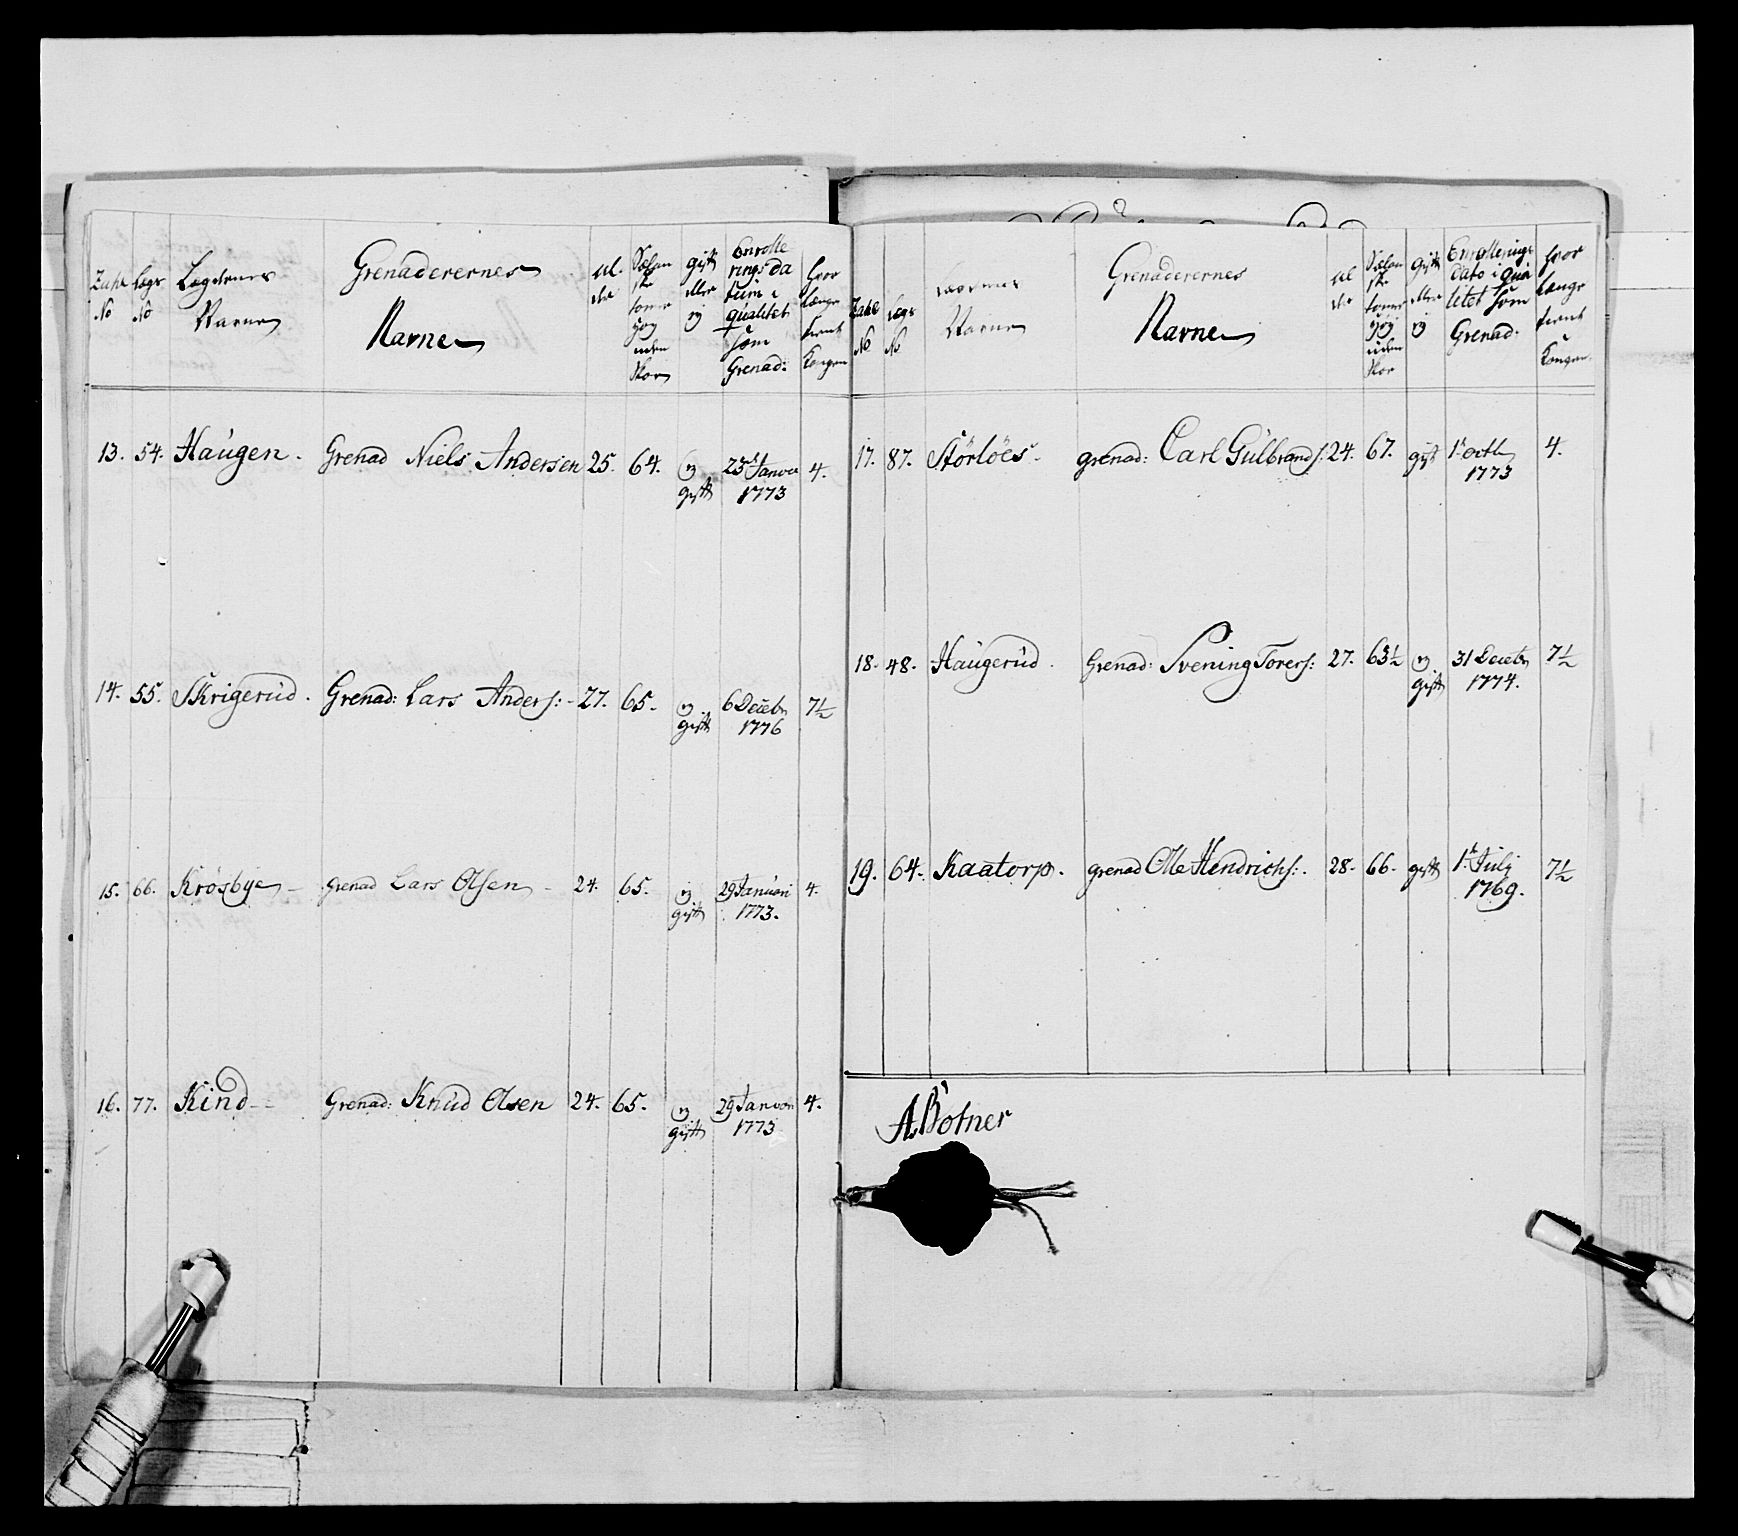 Zahl No
Lægs No
Lægdernes Navne
Grenaderernes Navne
Al- der
gift eller ej
Enrolle rings da tum i qualitet som Grenad:
hvor længe tient Kongen
13. 54. Haugen. Grenad Niels Andersen 25. 64. ej gift 23de Januar 1773 4.
14. 55. Skrigerud. Grenad: Lars Anders: - 27. 65. ej gift 6 Decebr 1776 7½
15. 66. Krösbye - Grenad Lars Olsen - 24. 65. ej gift 29 Januari 1773. 4.
16. 77. Kind - Grenad: Knud Olsen 24. 65. ej gift 29 Januari 1773 4.
Zahl No
Lægs No
Navne
Grenaderernes Navne
Al der
gift eller ej
Enrollerings dato i qua litet som Grenad:
hvor længe tient Kongen
17. 87. Störlöes. grenad: Carl Gulbrands: 24. 67. gift 1t octb 1773 4.
18. 48. Haugerud. Grenad: Svening Torers: 27. 63½ ej gift 31 Decebr 1774. 7½
19. 64. Kaatorp. grenad Ole Hendrichs:. 28. 66. gift 1t Julij 1769. 7½
A. Botner